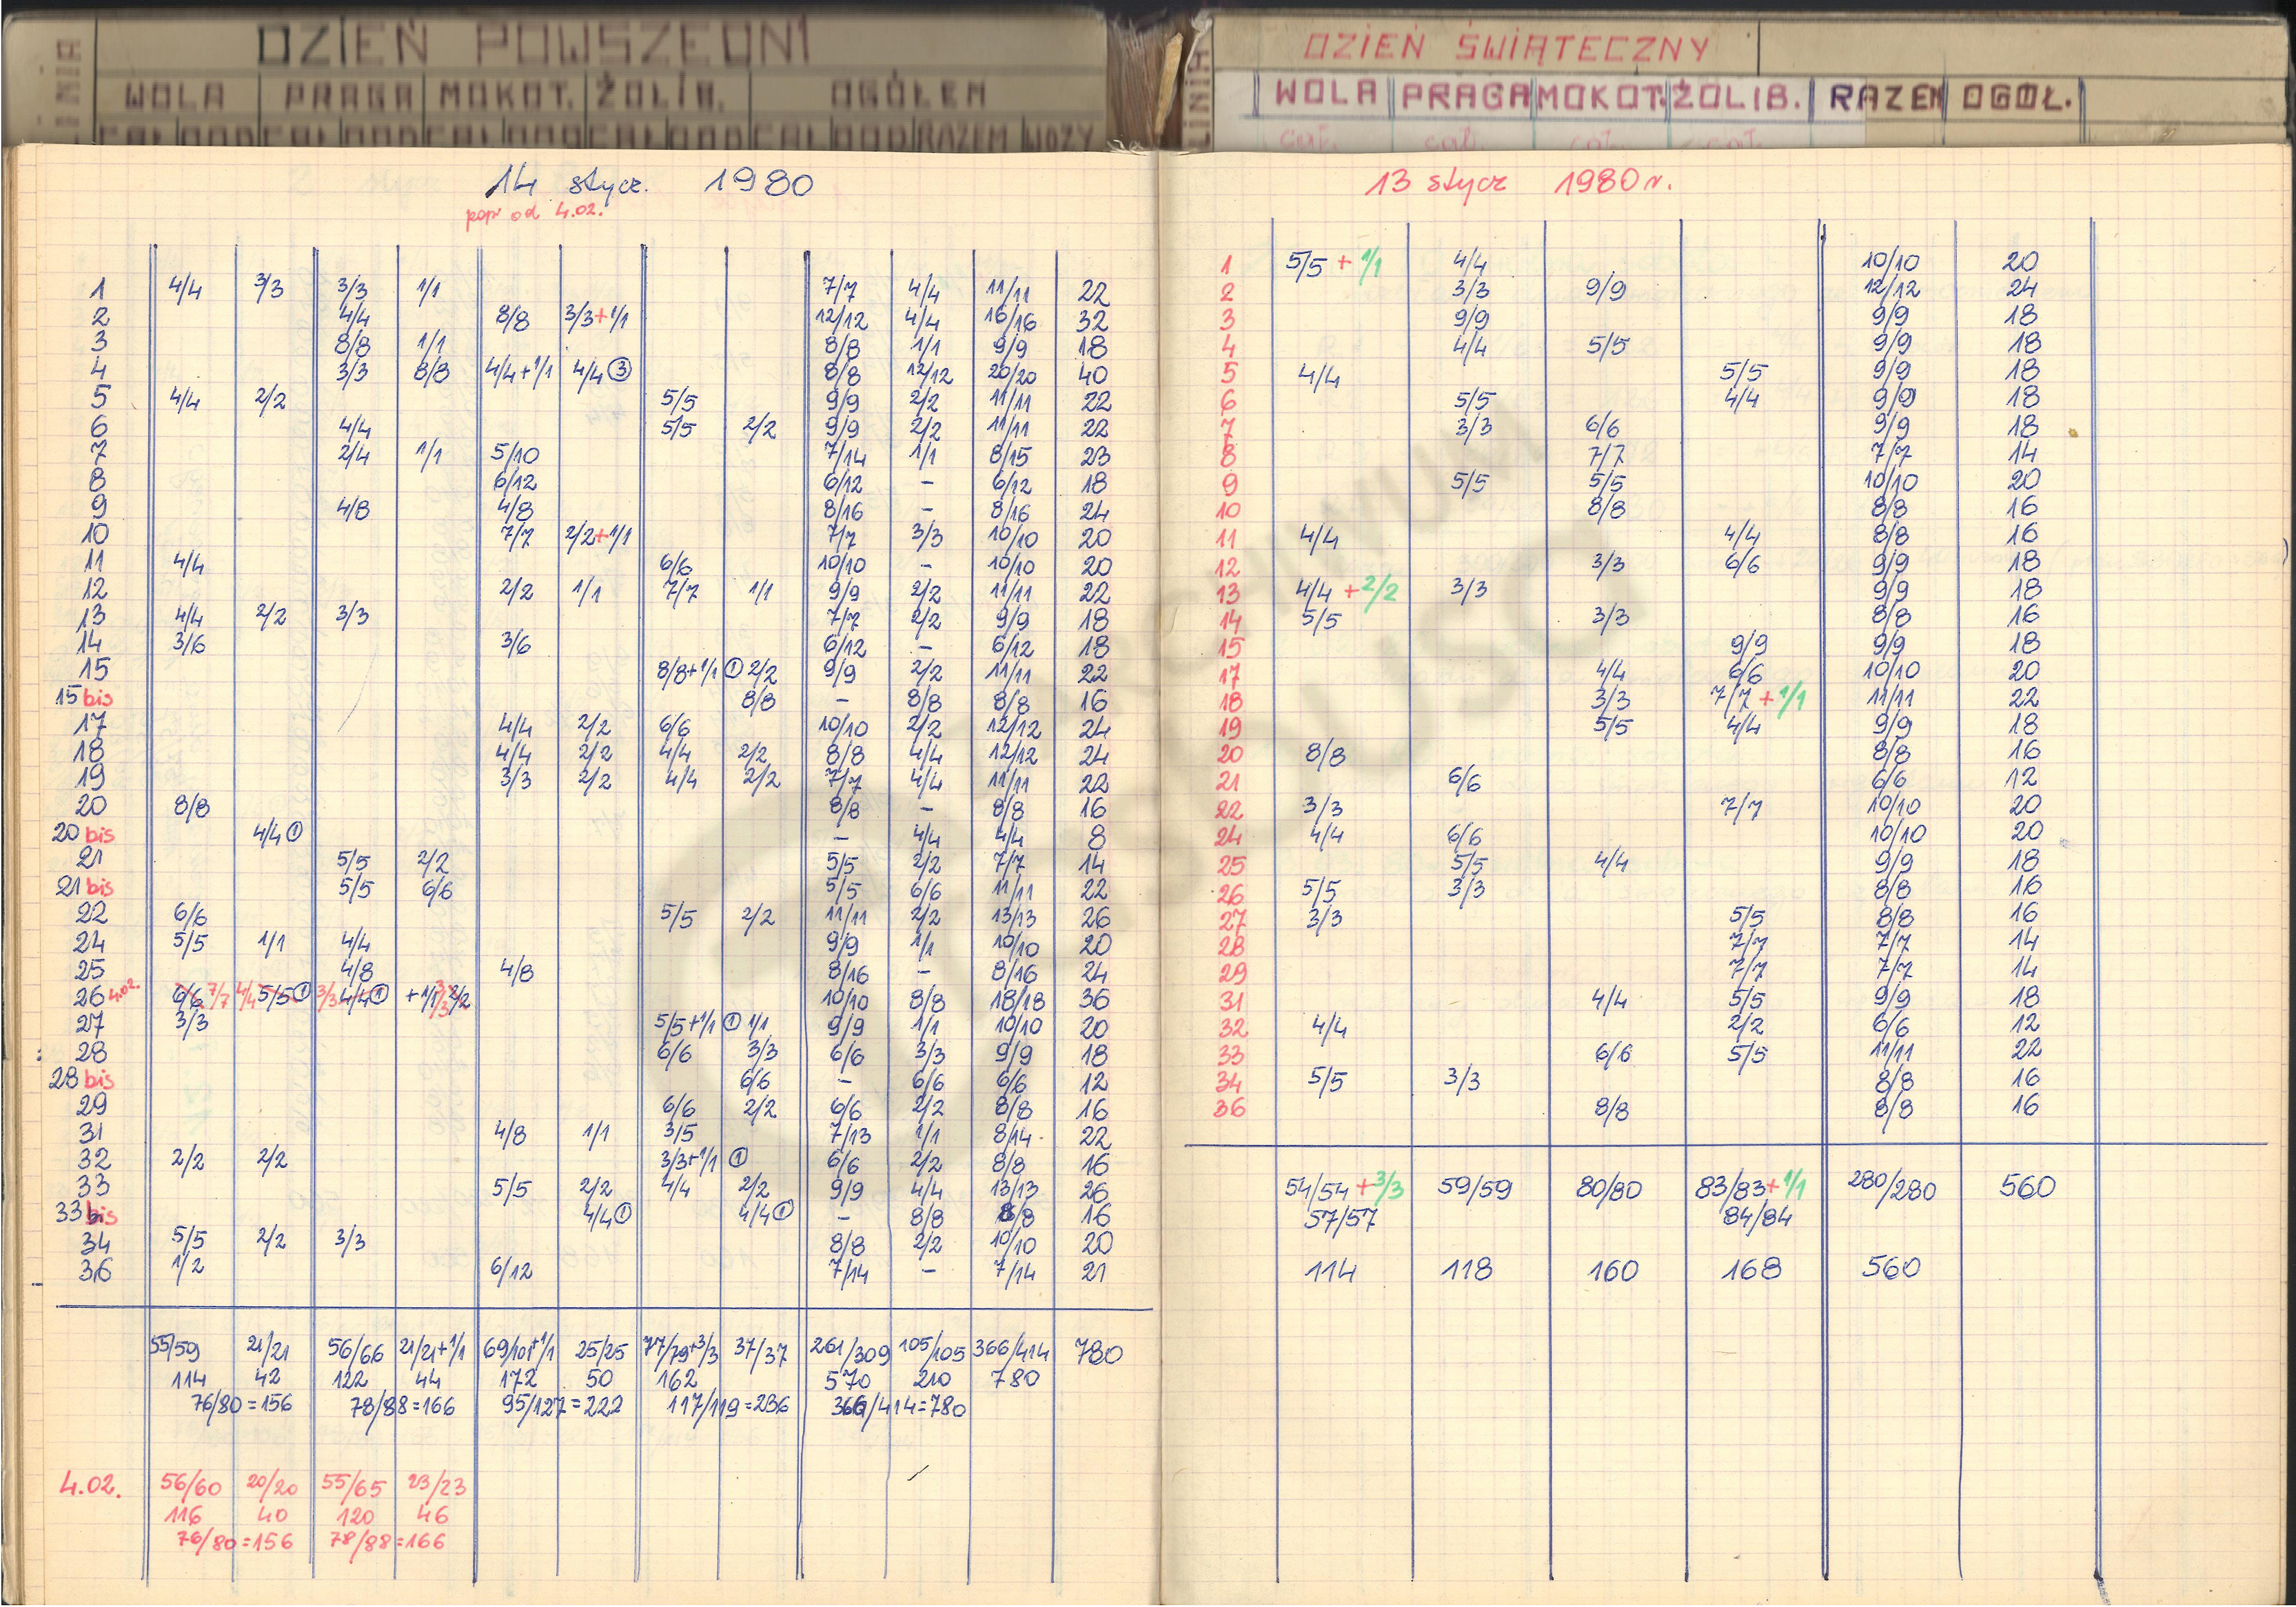 LINIA DZIEŃ POWSZEDNI
WOLA PRAGA MOKOT. ŻOLIB. OGÓŁEM
CAŁ ODD CAŁ ODD CAŁ ODD CAŁ ODD CAŁ ODD RAZEM WOZY
14 stycz. 1980
popr od 4.02.
1 4/4 3/3 3/3 1/1 7/7 4/4 11/11 22
2 4/4 8/8 3/3+1/1 12/12 4/4 16/16 32
3 8/8 1/1 8/8 1/1 9/9 18
4 3/3 8/8 4/4+1/1 4/4 ③ 8/8 12/12 20/20 40
5 4/4 2/2 5/5 9/9 2/2 11/11 22
6 4/4 5/5 2/2 9/9 2/2 11/11 22
7 2/4 1/1 5/10 7/14 1/1 8/15 23
8 6/12 6/12 – 6/12 18
9 4/8 4/8 8/16 – 8/16 24
10 7/7 2/2+1/1 7/7 3/3 10/10 20
11 4/4 6/6 10/10 – 10/10 20
12 2/2 1/1 7/7 1/1 9/9 2/2 11/11 22
13 4/4 2/2 3/3 7/7 2/2 9/9 18
14 3/6 3/6 6/12 – 6/12 18
15 8/8+1/1 ① 2/2 9/9 2/2 11/11 22
15 bis 8/8 – 8/8 8/8 16
17 4/4 2/2 6/6 10/10 2/2 12/12 24
18 4/4 2/2 4/4 2/2 8/8 4/4 12/12 24
19 3/3 2/2 4/4 2/2 7/7 4/4 11/11 22
20 8/8 8/8 – 8/8 16
20 bis 4/4 ① – 4/4 4/4 8
21 5/5 2/2 5/5 2/2 7/7 14
21 bis 5/5 6/6 5/5 6/6 11/11 22
22 6/6 5/5 2/2 11/11 2/2 13/13 26
24 5/5 1/1 4/4 9/9 1/1 10/10 20
25 4/8 4/8 8/16 – 8/16 24
26 4.02. 6/6 7/7 4/4 5/5 ① 3/3 4/4 ① +1/1 3/3 2/2 10/10 8/8 18/18 36
27 3/3 5/5+1/1 ① 1/1 9/9 1/1 10/10 20
28 6/6 3/3 6/6 3/3 9/9 18
28 bis 6/6 – 6/6 6/6 12
29 6/6 2/2 6/6 2/2 8/8 16
31 4/8 1/1 3/5 7/13 1/1 8/14 22
32 2/2 2/2 3/3+1/1 ① 6/6 2/2 8/8 16
33 5/5 2/2 4/4 2/2 9/9 4/4 13/13 26
33 bis 4/4 ① 4/4 ① – 8/8 8/8 16
34 5/5 2/2 3/3 8/8 2/2 10/10 20
36 1/2 6/12 7/14 – 7/14 21
55/59 21/21 56/66 21/21+1/1 69/101+1/1 25/25 77/79+3/3 37/37 261/309 105/105 366/414 780
114 42 122 44 172 50 162 570 210 780
76/80=156 78/88=166 95/127=222 117/119=236 366/414=780
4.02. 56/60 20/20 55/65 23/23
116 40 120 46
76/80=156 78/88=166
LINIA DZIEŃ ŚWIĄTECZNY
WOLA PRAGA MOKOT. ŻOLIB. RAZEM OGÓŁ.
cał. cał. cał. cał.
13 stycz 1980 r.
1 5/5 + 1/1 4/4 10/10 20
2 3/3 9/9 12/12 24
3 9/9 9/9 18
4 4/4 5/5 9/9 18
5 4/4 5/5 9/9 18
6 5/5 4/4 9/9 18
7 3/3 6/6 9/9 18
8 7/7 7/7 14
9 5/5 5/5 10/10 20
10 8/8 8/8 16
11 4/4 4/4 8/8 16
12 3/3 6/6 9/9 18
13 4/4 + 2/2 3/3 9/9 18
14 5/5 3/3 8/8 16
15 9/9 9/9 18
17 4/4 6/6 10/10 20
18 3/3 7/7 + 1/1 11/11 22
19 5/5 4/4 9/9 18
20 8/8 8/8 16
21 6/6 6/6 12
22 3/3 7/7 10/10 20
24 4/4 6/6 10/10 20
25 5/5 4/4 9/9 18
26 5/5 3/3 8/8 16
27 3/3 5/5 8/8 16
28 7/7 7/7 14
29 7/7 7/7 14
31 4/4 5/5 9/9 18
32 4/4 2/2 6/6 12
33 6/6 5/5 11/11 22
34 5/5 3/3 8/8 16
36 8/8 8/8 16
54/54 + 3/3 59/59 80/80 83/83 + 1/1 280/280 560
57/57 84/84
114 118 160 168 560